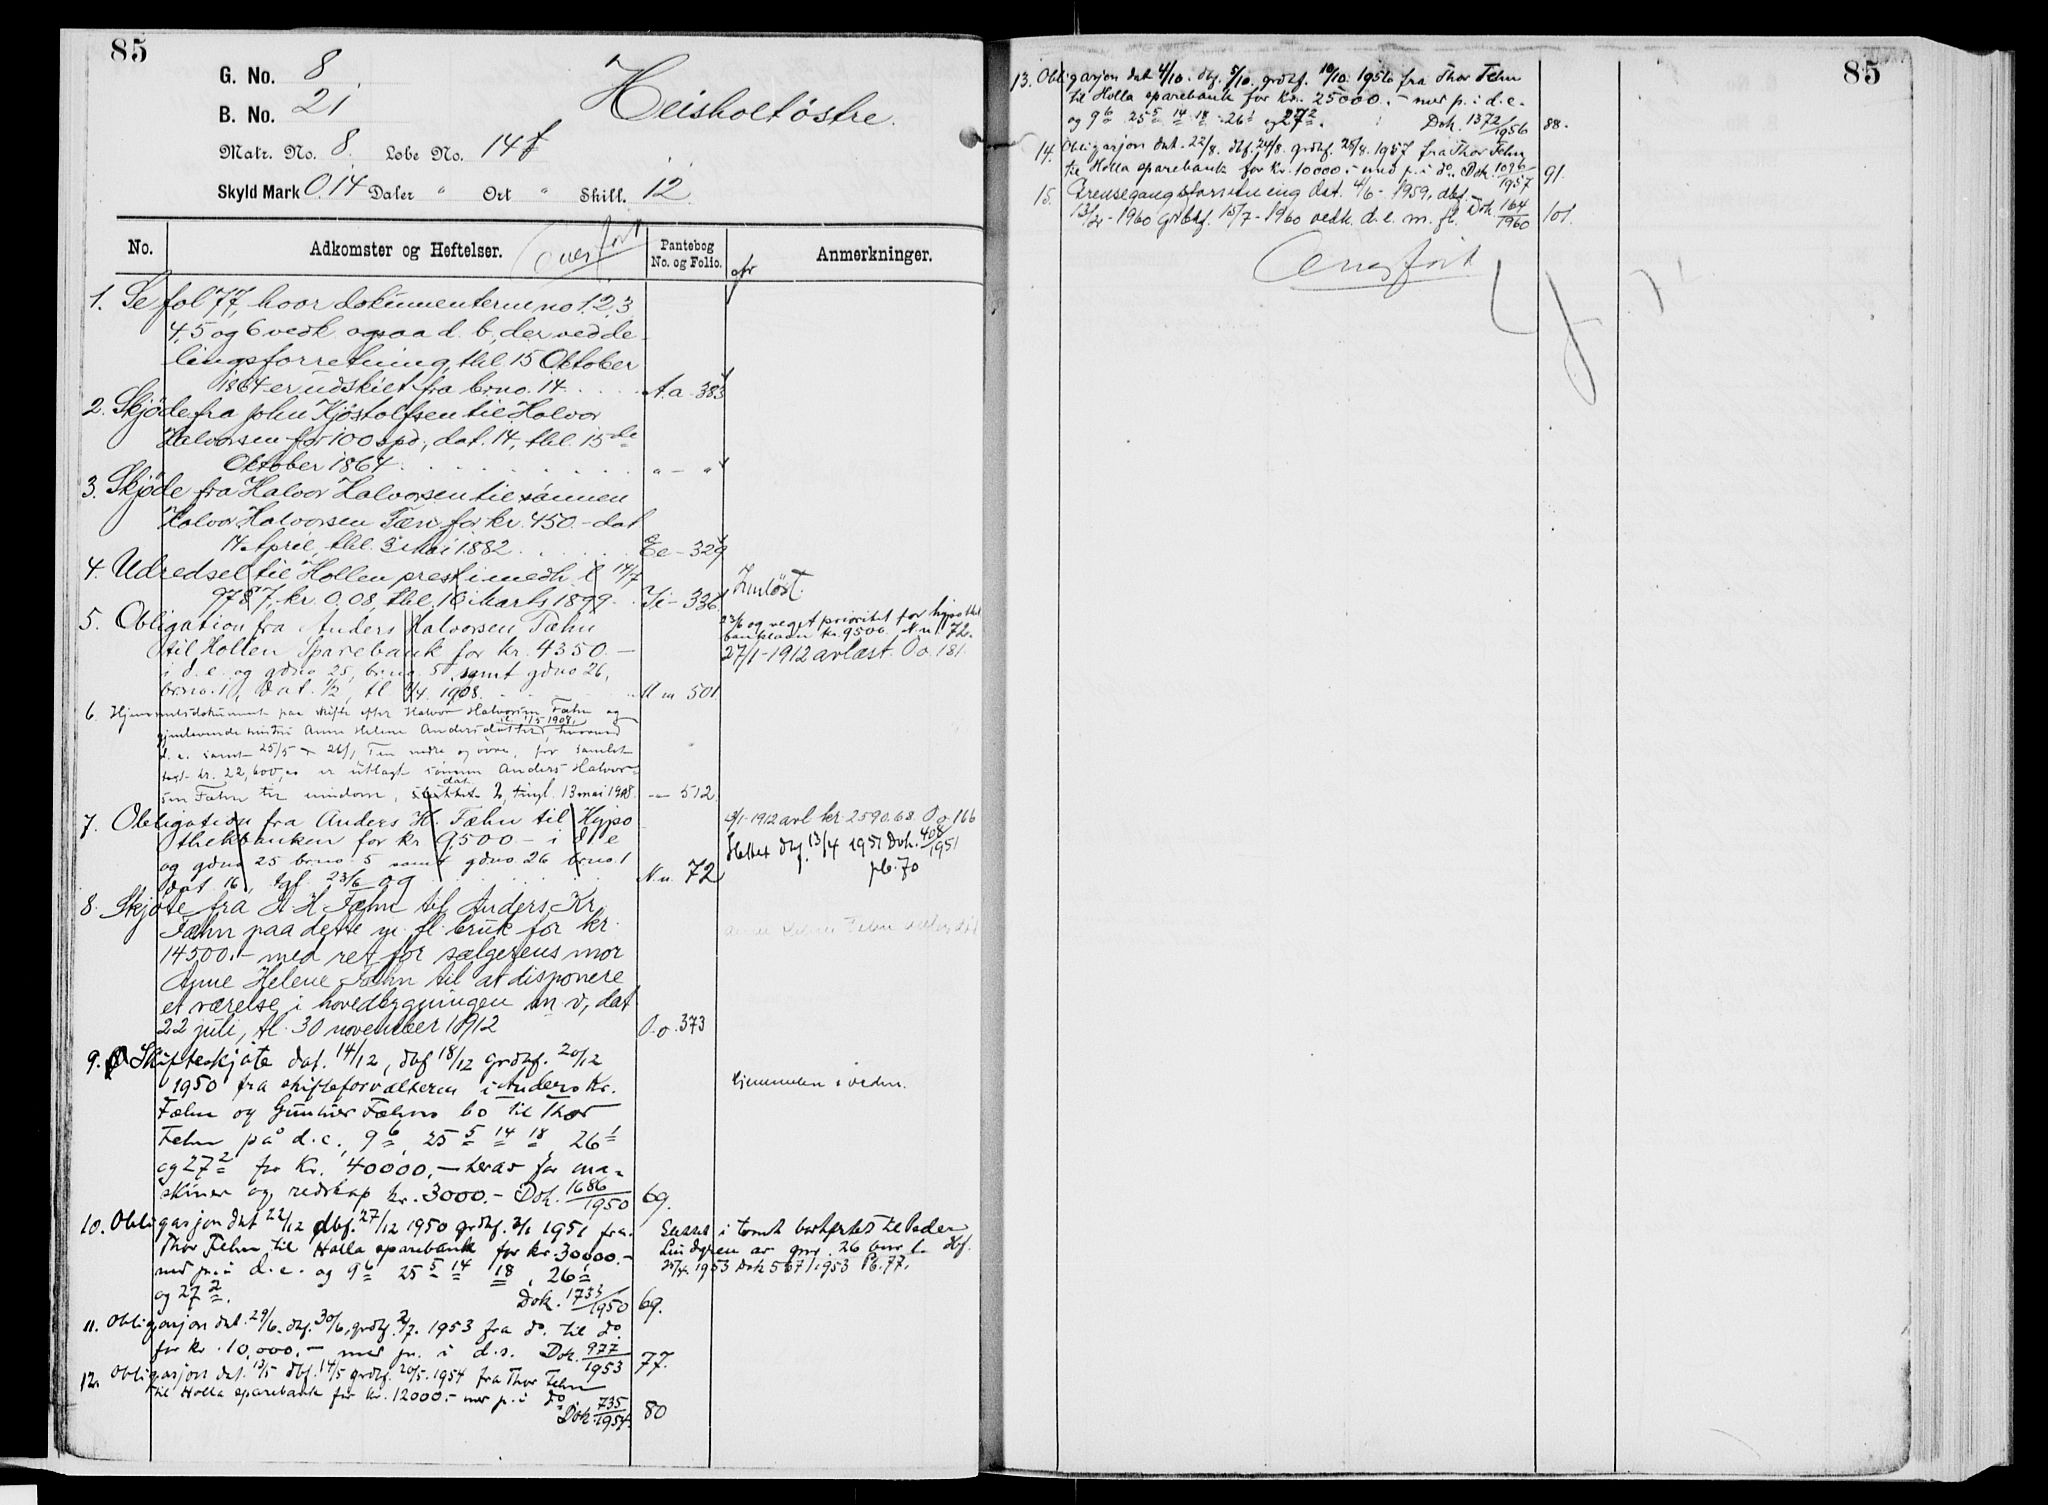 85
G. No. 8
B. No. 21
Heisholtöstre.
Matr. No. 8. Løbe No. 14f
Skyld Mark 0.14 Daler " Ort " Skill. 12.
No.
Adkomster og Heftelser.
Overført
Pantebog
No. og Folio.
Anmerkninger.
1. Se fol 77, hvor dokumenterne no 1, 2, 3,
4, 5 og 6 vedk. ogsaa d. b., der ved de-
lingsforretning, thl. 15 Oktober
1864 er udskilt fra brno. 14 A.a. 383
2. Skjöde fra John Kjöstolfsen til Halvor
Halvorsen for 100 spd., dat. 14, thl. 15de
Oktober 1864 " — "
3. Skjöde fra Halvor Halvorsen til sönnen
Halvor Halvorsen Fæn for kr. 450.- dat
14 April, thl. 3 Mai 1882 Ee - 329
4. Udredsel til Hollen prest i medh. l. 14/7
97 § 7, kr. 0,08, thl. 16 Marts 1899. Ii - 336.
Indløst.
5. Obligation fra Anders Halvorsen Fæhn
til Hollen Sparebank for kr. 4350.-
i d. e. og gdno 25, brno. 5, samt gdno 26,
brno. 1, dat. 1/2, tl. 1908. M m 501
23/6 og veget prioritet for hypothek
banklaan kr. 9500. N n 72.
27/1-1912 avlæst. O o. 181.
6. Hjemmelsdokument paa skifte efter Halvor Halvorsen Fæhn og
gjenlevende hustru Anne Helene Andersdatter, hvorved
d. e. samt 25/5 26/1, Fen nedre og övre, for samlet
taxt kr. 22,600,00 er utlagt sönnen Anders Halvor-
sen Fæhn til eiendom, dat. 2, tingl. 13 mai 1908. — 512.
7. Obligation fra Anders H. Fæhn til Hypo
thekbanken for kr. 9,500.- i d. e
og gdno 25 brno 5 samt gdno 26 brno. 1
dat. 16, tgl. 23/6 09 N.n. 72
1912 avl kr. 2590.68. O o 166
Slettet dbf. 13/4 1951 Dok. 408/1951
pb. 70
8. Skjøte fra A. H. Fæhn til Anders Kr.
Fæhn paa dette m. fl. bruk for kr.
14500.- med ret for sælgerens mor
Anne Helene Fæhn til at disponere
et værelse i hovedbygningen m. v., dat
22 juli, tl. 30 november 1912 O.o. 373
Anne Helene Fehn
9. Skifteskjøte dat. 14/12, dbf 18/12 grdbf. 20/12
1950 fra skifteforvalteren i Anders Kr.
Fæhn og Gunner Fæhns bo til Thor
Fehn på d.e., 9 6, 25 5 14 18, 26 1
og 27 2 for kr. 40000.- herav for ma-
skiner og redskap kr. 3000.- Dok. 1686/1950 69.
Hjemmelen i orden.
10. Obligasjon dat 22/12 dbf. 27/12 1950 grdbf. 2/1 1951 fra
Thor Fehn til Holla sparebank for kr. 30,000.-
med p. i d.e. og 9 6 25 5 14 18, 26 1
og 27 2. Dok. 1733/1950 69.
i tomt bortfestes til Peder
Lindgren av gnr. 26 bnr 1. Dbf.
25/4. 1953 Dok 567/1953 Pb. 77.
11. Obligasjon dat. 29/6. dbf. 30/6, grdbf. 2/7. 1953 fra do. til do.
for kr. 10,000.- med p. i d.e. Dok. 977/1953 77.
12. Obligasjon dat. 13/5 dbf. 14/5 grdbf. 20/5. 1954 fra Thor Fehn
til Holla sparebank for kr. 12000.- med p. i do
Dok. 735/1954. 80
85
13. Obligasjon dat 4/10. dbf. 5/10. grdbf. 10/10. 1956 fra Thor Fehn
til Holla sparebank for kr. 25000.- med p. i d.e.
og 9 6 25 5 14 18 26 1 og 27 2. Dok. 1372/1956 88.
14. Obligasjon dat. 22/8. dbf. 24/8. grdbf. 28/8. 1957 fra Thor Fehn
til Holla sparebank for kr. 10000.- med p. i do. Dok. 1096/1957 91.
15. Grensegangsforretning dat. 4/6 - 1959, dbf.
1960 grdbf. 15/7 - 1960 vedk. d.e. m. fl. Dok. 164/1960 101.
Overført